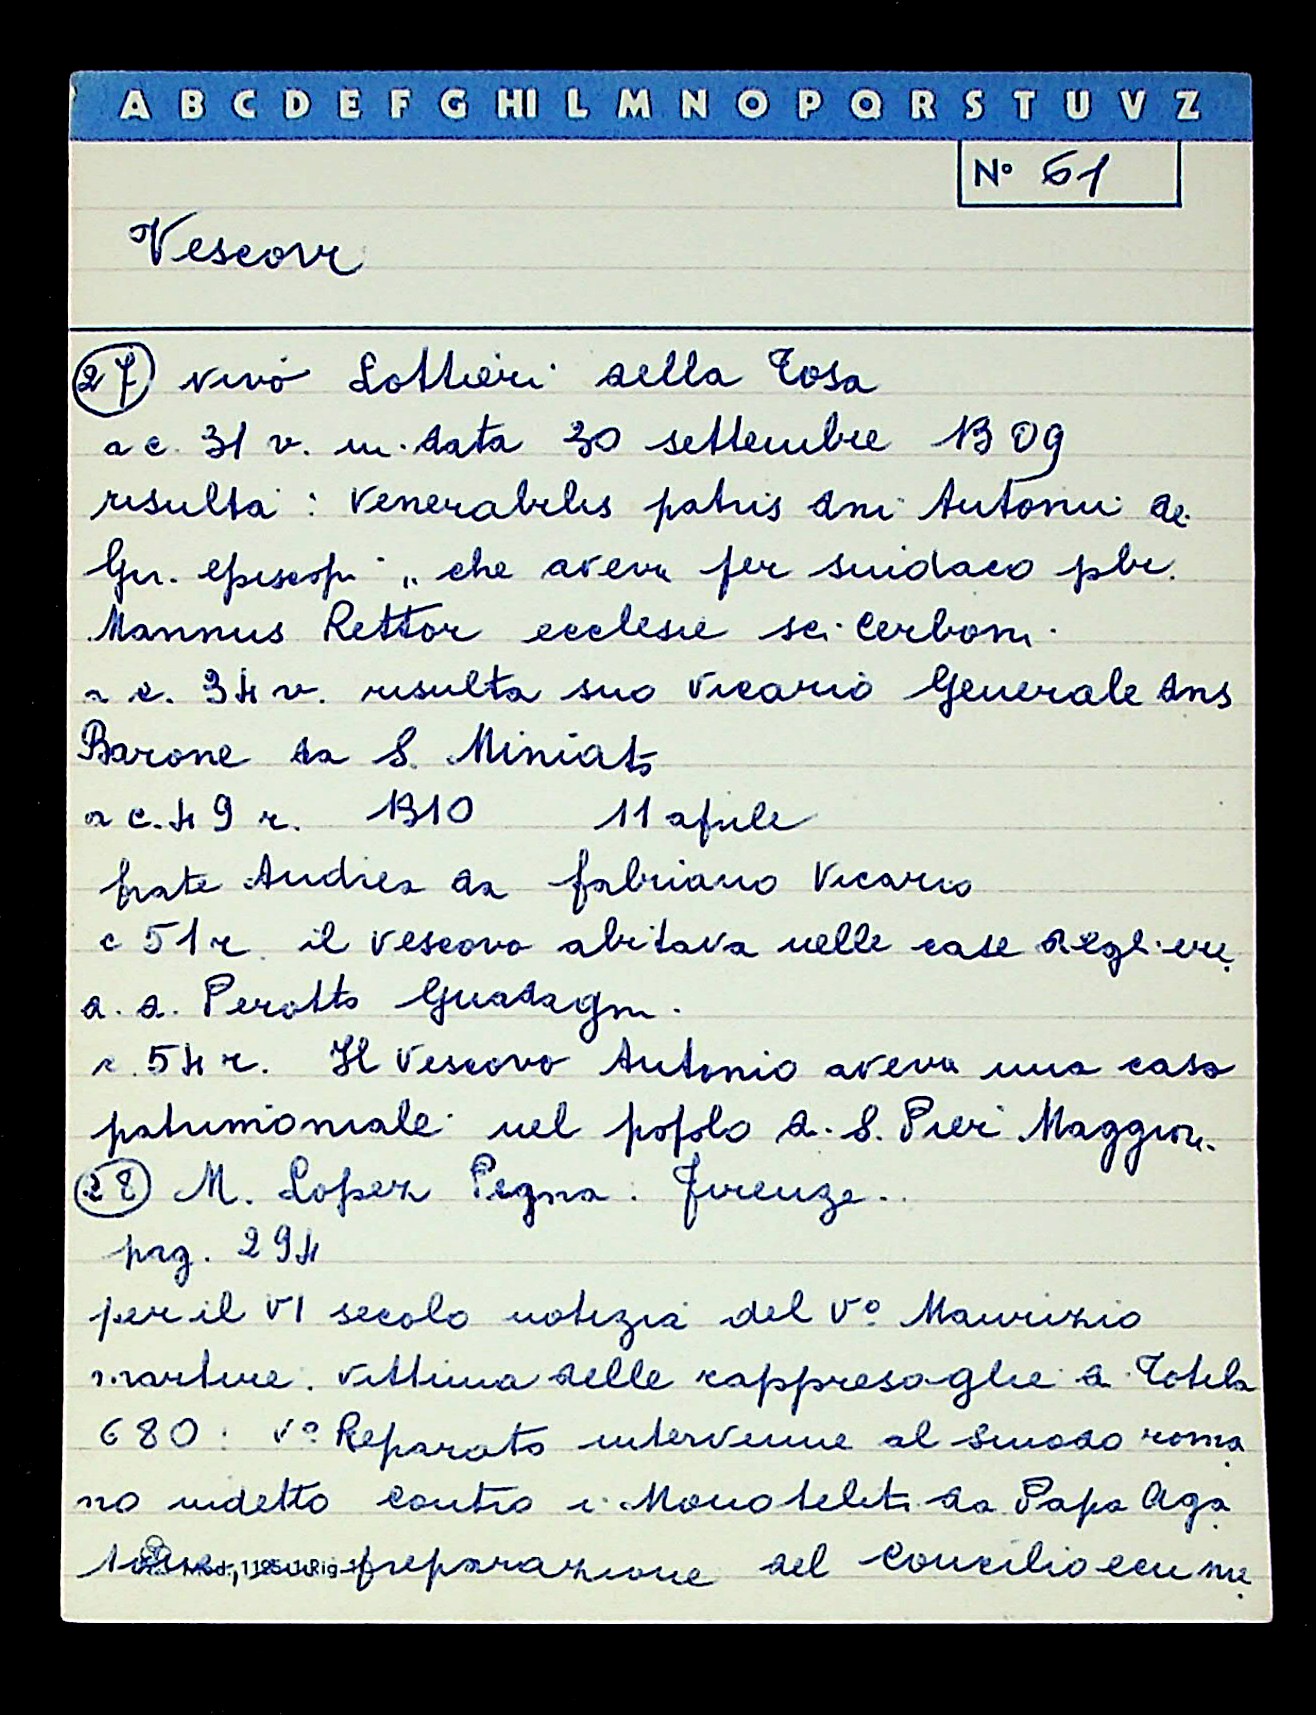 A B C D E F G HI L M N O P Q R S T U V Z
N° 61
Vescovi
27 vivò Lottieri della Tosa
a c. 31 v. in data 30 settembre 1309
risulta : Venerabilis patris dni Antonii dei
Gr. episcopi „ che aveva per sindaco pbr.
Mannus Rettor ecclesie sci Cerboni.
a c. 34 v. risulta suo Vicario Generale dns
Barone da S. Miniato
a c. 49 r. 1310 11 aprile
frate Andrea da fabriano Vicario
c 51 r. il vescovo abitava nelle case degli ere
d. d. Perotto Guadagni.
c. 54 r. Il Vescovo Antonio aveva una casa
patrimoniale nel popolo d. S. Pier Maggiore.
28 M. Lopez Pegna. Firenze..
pag. 294
per il VI secolo notizia del V° Maurizio
martire. Vittima delle rappresaglie d Totila
680 : V° Reparato intervenne al Sinodo roma
no indetto contro i Monoteliti da Papa Aga
preparazione del Concilio ecume